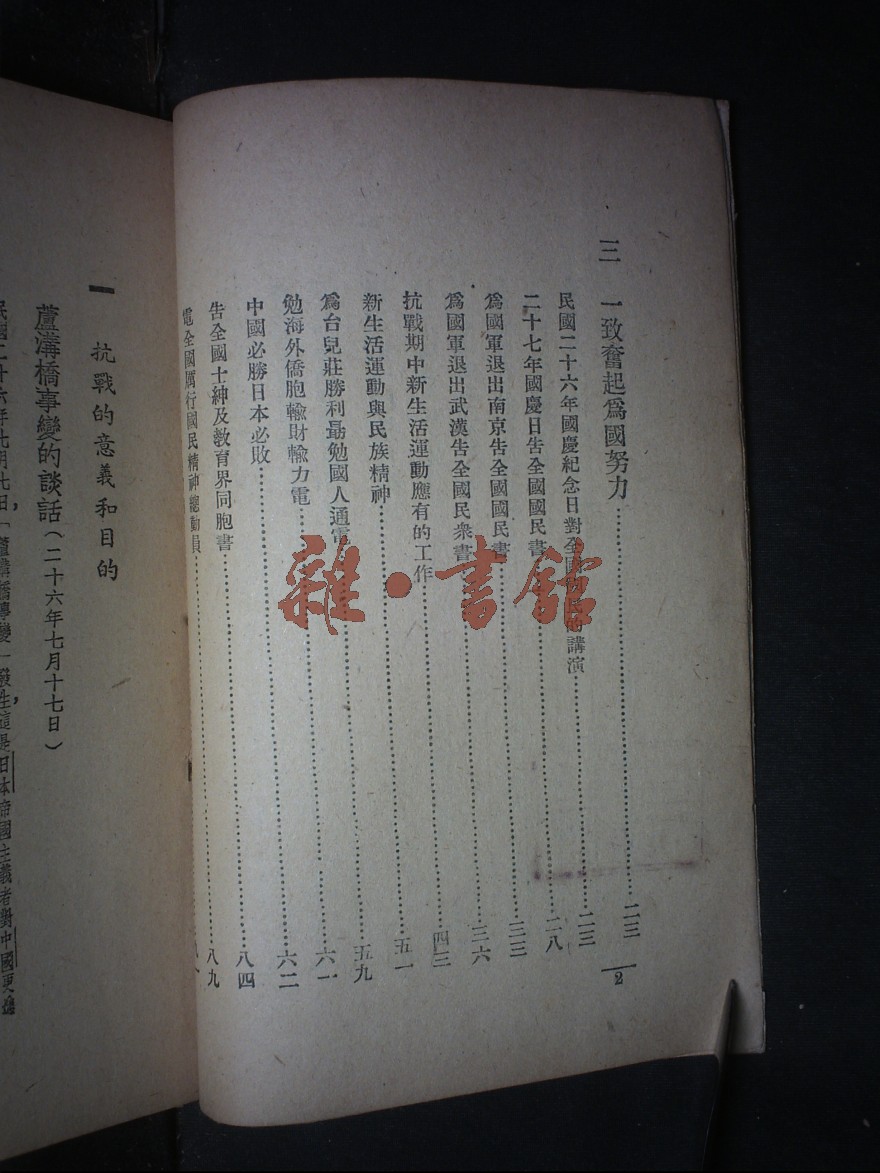 三 一致奮起爲國努力……二三
民國二十六年國慶紀念日對全國國民的講演……二三
二十七年國慶日告全國國民書……二八
爲國軍退出南京告全國國民書……三三
爲國軍退出武漢告全國民衆書……三六
抗戰期中新生活運動應有的工作……四三
新生活運動與民族精神……五一
爲台兒莊勝利勗勉國人通電……五九
勉海外僑胞輸財輸力電……六一
中國必勝日本必敗……六二
告全國士紳及教育界同胞書……八四
電全國厲行國民精神總動員……八九
2
一 抗戰的意義和目的
蘆溝橋事變的談話(二十六年七月十七日)
民國二十六年七月七日,「蘆溝橋事變」發生,這是日本帝國主義者對中國更進
雜·書館